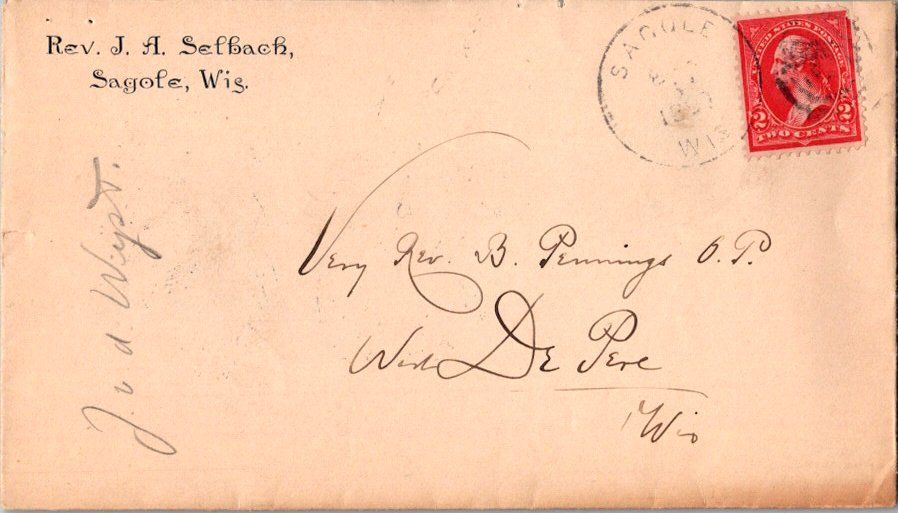 Rev. J. A. Selbach,
Sagole, Wis.
SAGOLE
WIS
UNITED STATES POSTAGE
2 2
TWO CENTS
Very Rev. B. Pennings O.P.
West De Pere
Wis
J. v d.